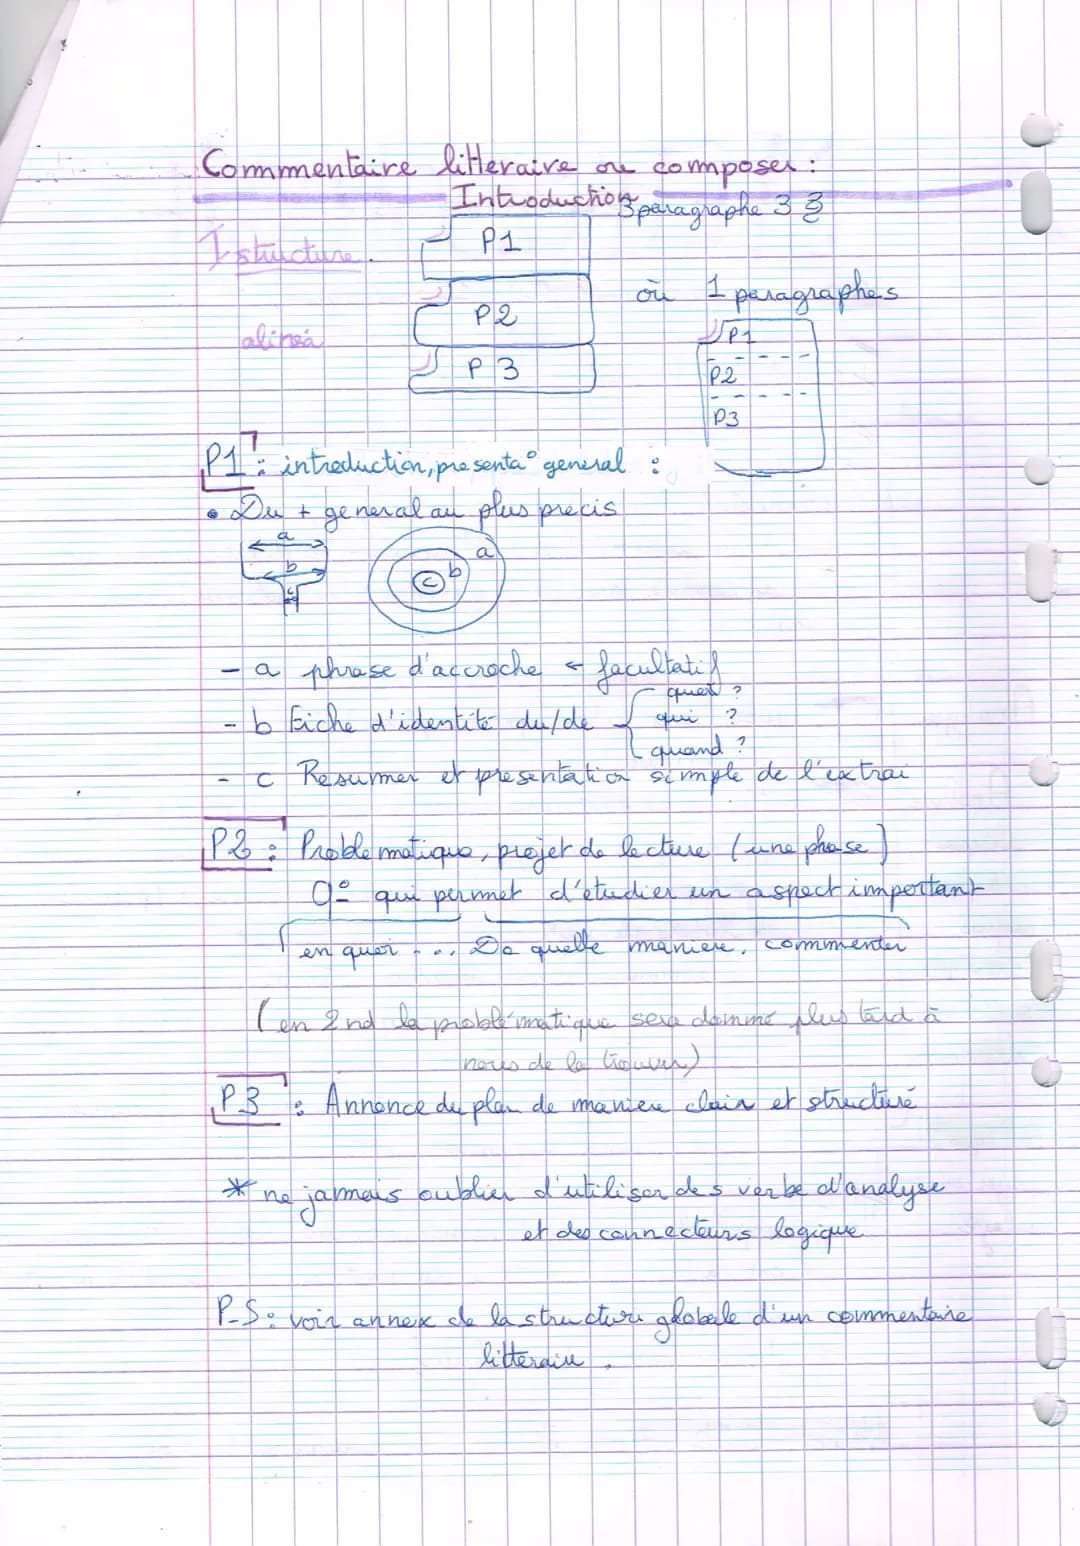 Commentaire litteraire ou composer :
Introduction
3 paragraphe 3 3
I structure.
P1
ou 1 paragraphes
P2
alinéa
P1
P 3
P2
P3
P1 : introduction, presenta° general :
• Du + general au plus precis
a
a
b
b
c
c
- a phrase d'accroche ← facultatif
quoi ?
- b Fiche d'identité du/de
qui ?
quand ?
- c Resumer et presentation simple de l'extrai
P2 : Problematique, projet de lecture (une phase)
Q° qui permet d'étudier un aspect important
en quoi ... De quelle maniere, commenter
(en 2nd la problématique sera donmé plus tard à
nous de la trouver)
P3 : Annonce du plan de maniere clair et structuré
* ne jamais oublier d'utiliser des verbe d'analyse
et des connecteurs logique
P-S : voir annex de la structure globale d'un commentaire
litteraire.